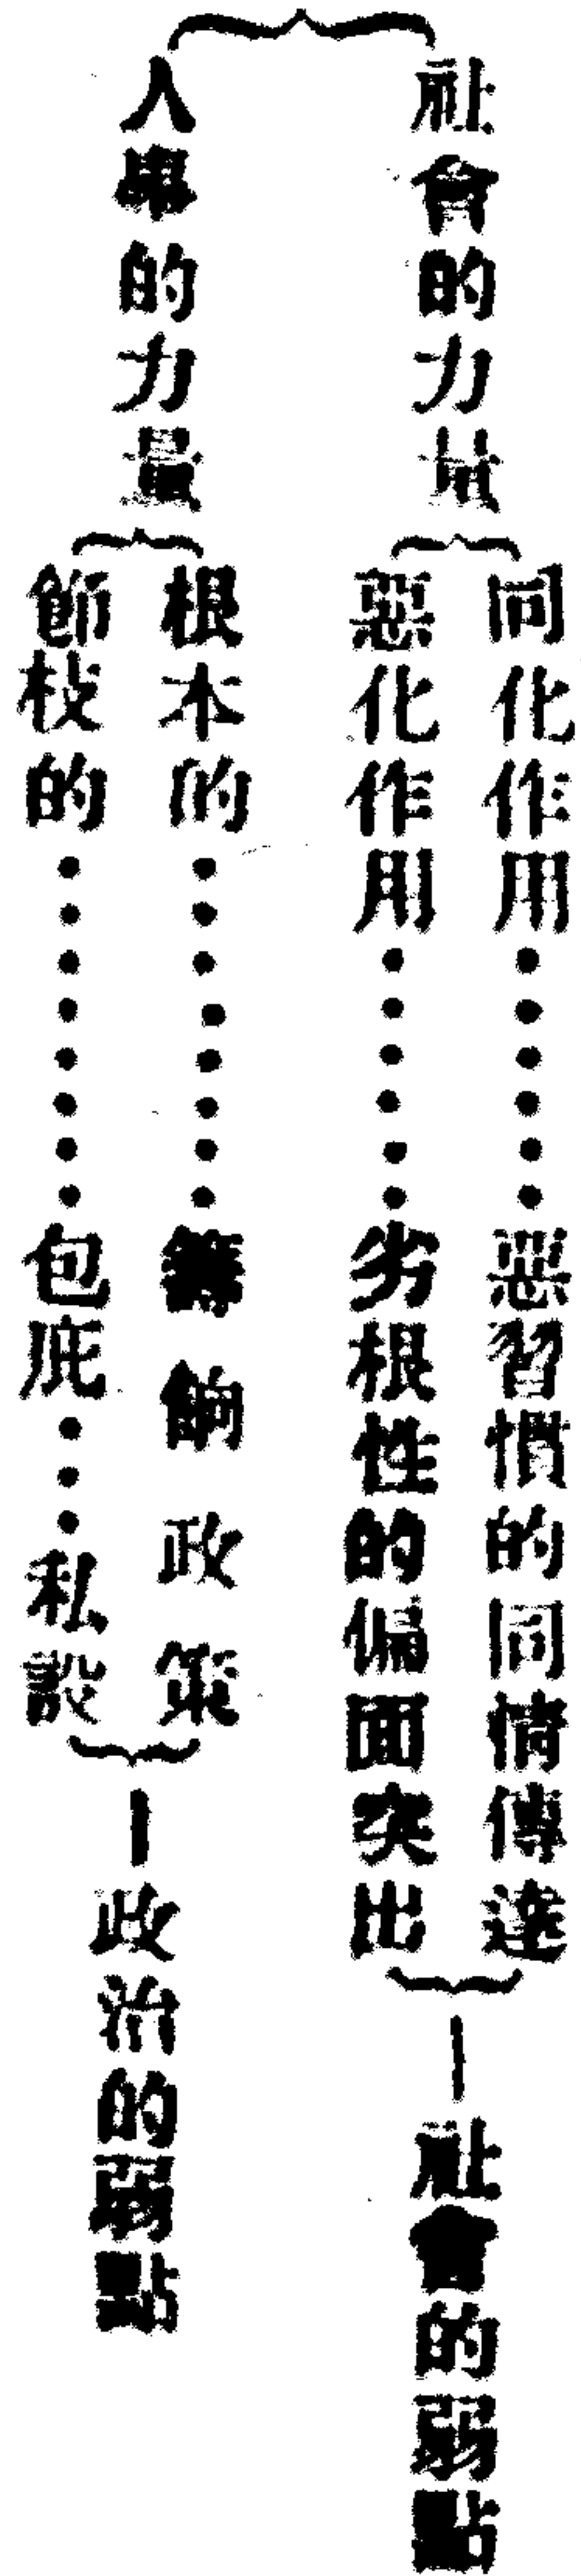 社會的力量
同化作用………惡習慣的同情傳達
惡化作用………劣根性的偏面突出
—社會的弱點
人事的力量
根本的………籌餉政策
節枝的………包庇…私設
—政治的弱點